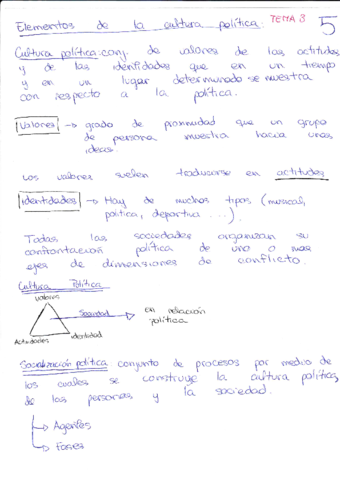 Elementos de la cultura política. TEMA 3 5
Cultura política: conj. de valores de las actitudes
y de las identidades que en un tiempo
y en un lugar determinado se muestra
con respecto a la política.
Valores → grado de proximidad que un grupo
de persona muestra hacia unas
ideas.
Los valores suelen traducirse en actitudes
identidades → Hay de muchos tipos (musical,
política, deportiva ...).
Todas las sociedades organizan su
confrontación política de uno o mas
ejes de dimensiones de conflicto.
Cultura Política
Valores
Sociedad en relación
política
Actividades identidad
Socialización política conjunto de procesos por medio de
los cuales se construye la cultura política,
de las personas y la sociedad.
→ Agentes
→ Fases